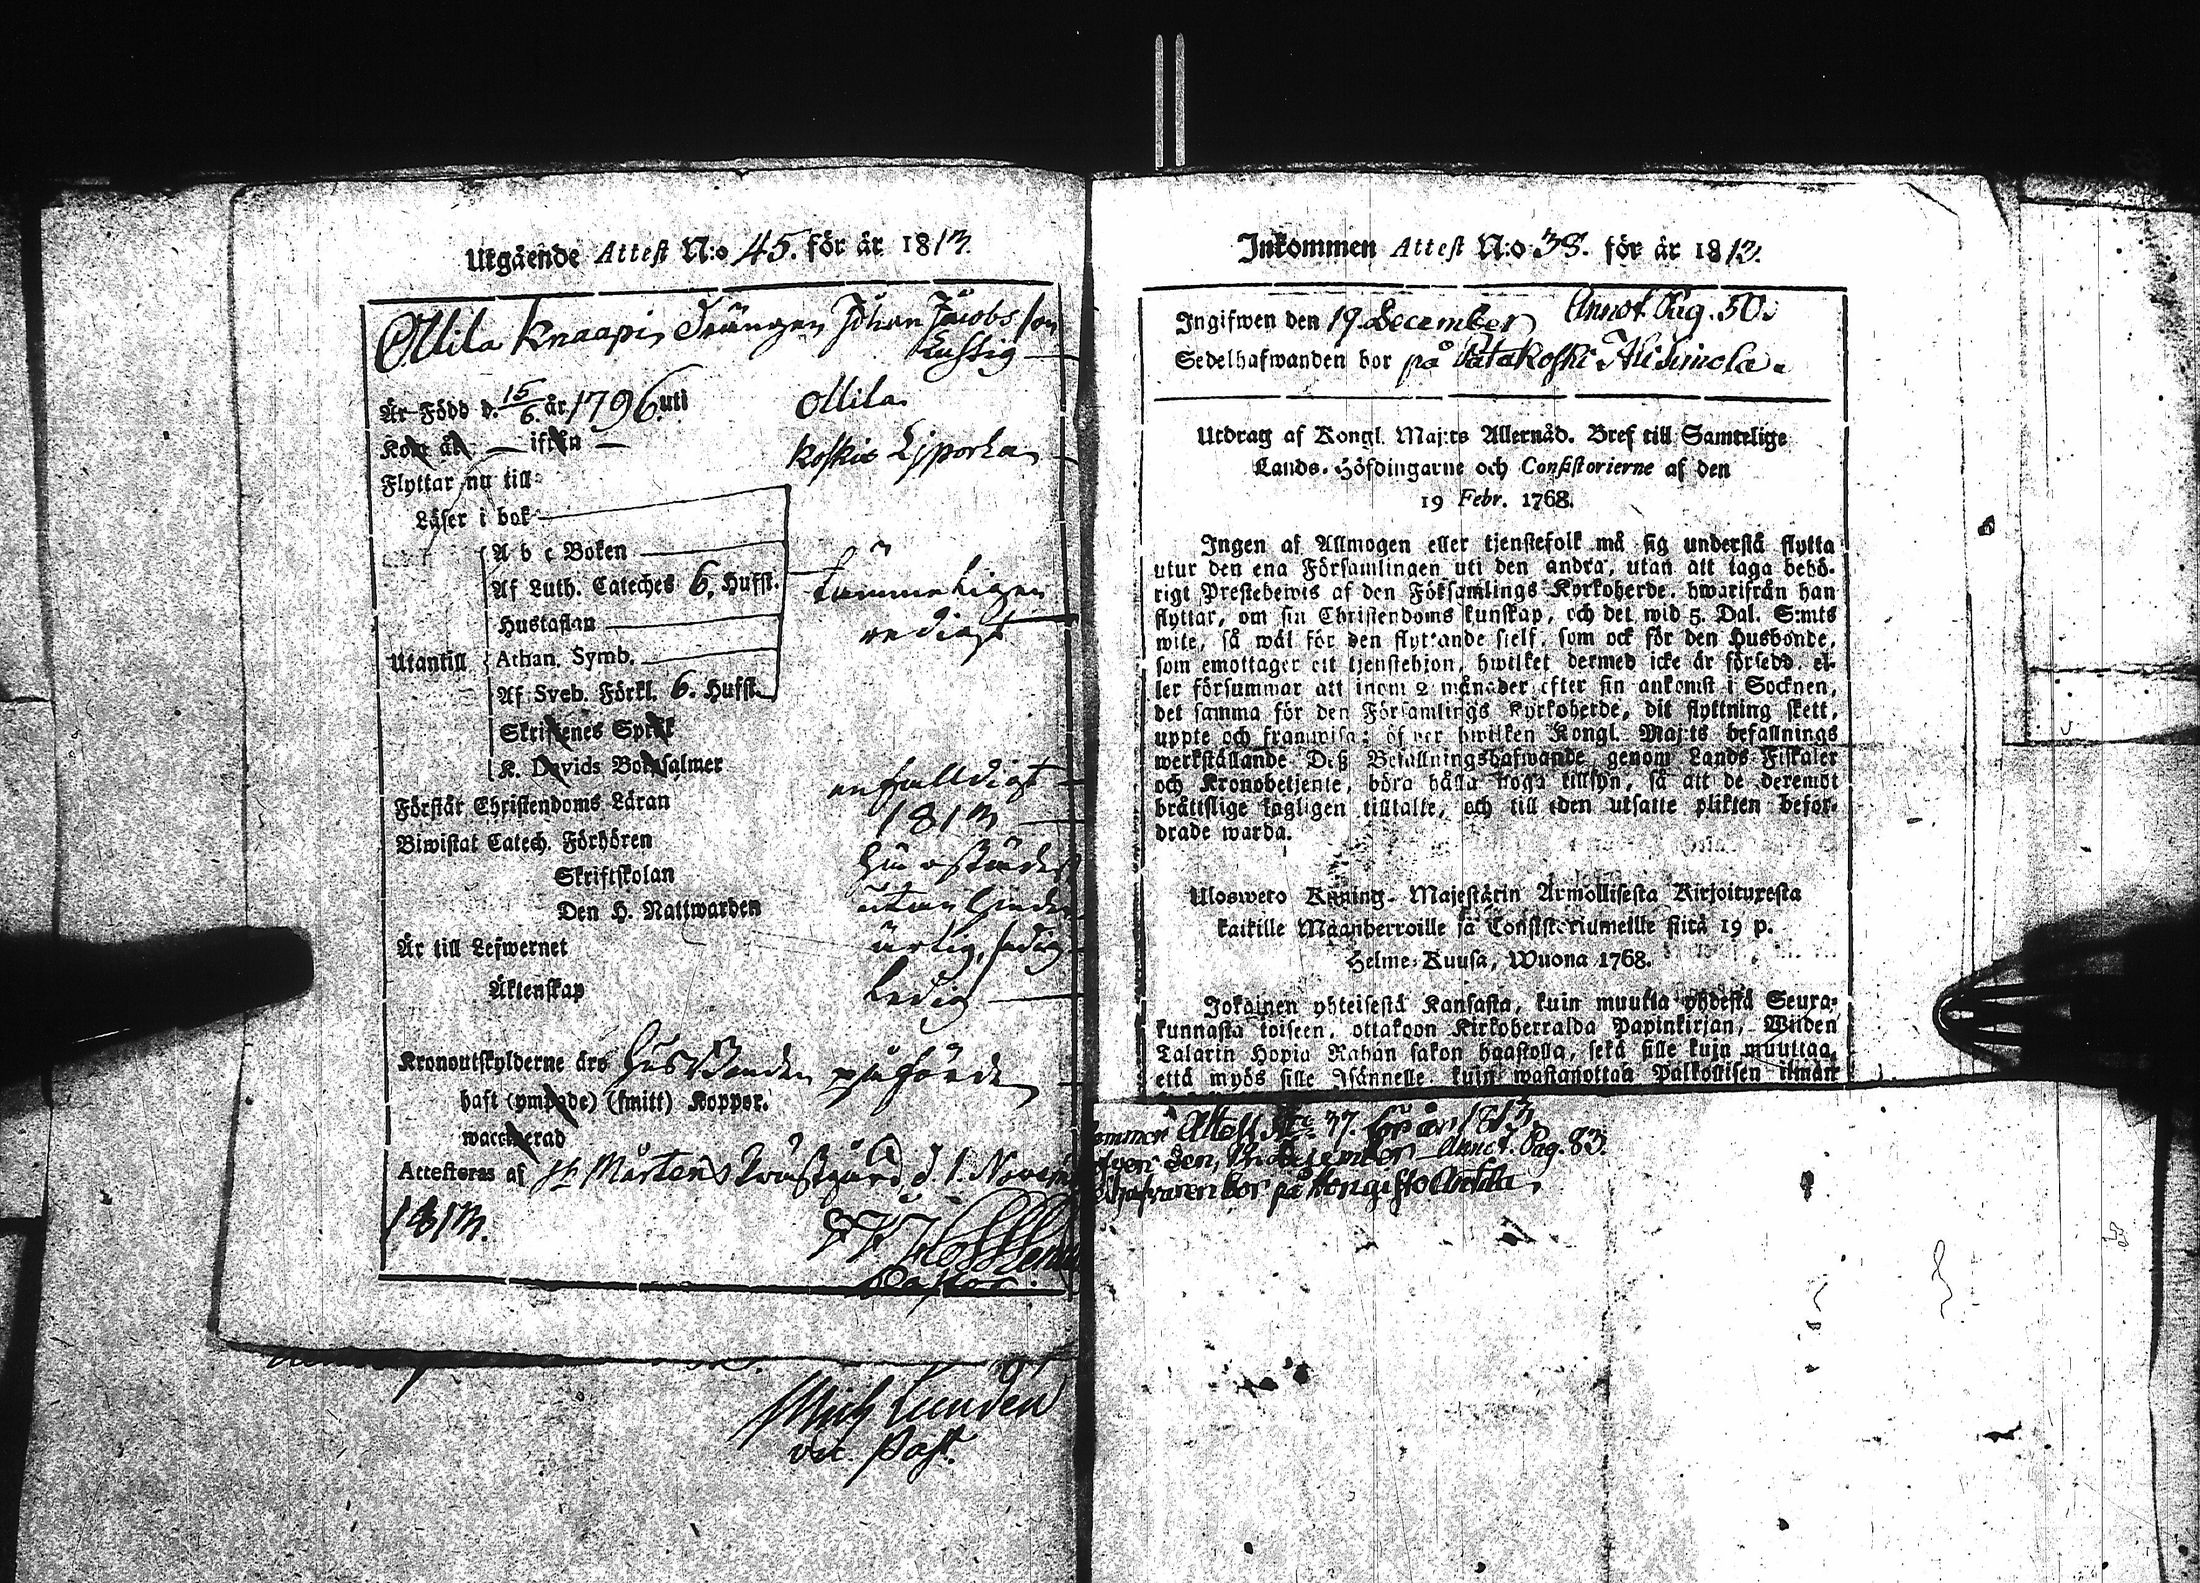 Utgående Attest N:o 45. för år 1813.
Ollila Knaapi, Drängen Johan Jacobs son
Lustig
Är Född d. 15/6. år 1796 uti Ollila
Kom år — ifrån —
Flyttar nu till: Koskis Liporla
Läser i bok
A b c Boken
Af Luth. Cateches 6. Hufst. tämmeligen
Hustaflan redigt
Utantill Athan. Symb.
Af Sveb. Förkl. 6. Hufst.
Skriftenes Språk
K. Davids Botpsalmer
Förstår Christendoms Läran enfalldigt
Biwistat Catech. Förhören 1813
Skriftskolan
Den H. Nattwarden utan hinder
Är till Lefwernet ärlig, sedig
Äktenskap Ledig
Kronoutskylderne äro Husbonden påförde
haft (ympade) (smitt) Koppor.
waccinerad
Attesteras af St Mårtens Prästgård d. 1. Novem
1813.
Pastor
Mich Lunden
vic. Past.
Inkommen Attest N:o 38. för år 1813.
Ingifwen den 19. December Annot. Pag. 50.
Sedelhafwanden bor på Patakoski Alisimola.
Utdrag af Kongl. Maj:ts Allernåd. Bref till Samtelige
Lands-Höfdingarne och Consistorierne af den
19 Febr. 1768.
Ingen af Allmogen eller tjenstefolk må sig understå flytta
utur den ena Församlingen uti den andra, utan att taga behö-
rigt Prestebewis af den Föksamlings Kyrkoherde, hwarifrån han
flyttar, om sin Christendoms kunskap, och det wid 5. Dal. S:mts
wite, så wäl för den flyttande sielf, som ock för den Husbonde,
som emottager ett tjenstehjon, hwilket dermed icke är försedd, el-
ler försummar att inom 2 månader efter sin ankomst i Socknen,
det samma för den Församlings Kyrkoherde, dit flyttning skett,
uppte och framwisa; öfwer hwilken Kongl. Maj:ts befallnings
werkställande Deß Befallningshafwande genom Lands Fiskaler
och Kronobetjente, böra hålla noga tillsyn, så att de deremot
bråttslige lagligen tilltalte, och till den utsatte plikten befor-
drade warda.
Ulosweto Kuning. Majestätin Armollisesta Kirjoituxesta
kaikille Maanherroille ja Consistoriumeille siitä 19 p.
Helme-Kuusa, Wuona 1768.
Jokainen yhteisestä Kansasta, kuin muutta yhdestä Seura-
kunnasta toiseen, ottakoon Kirkoherralda Papinkirjan, Wiiden
Talarin Hopia Rahan sakon haastolla, sekä sille kuin muuttaa,
että myös sille Isännelle kuin wastanottaa Palkollisen ilman
ommen Attest No 37. för år 1813.
Annot. Pag. 83.